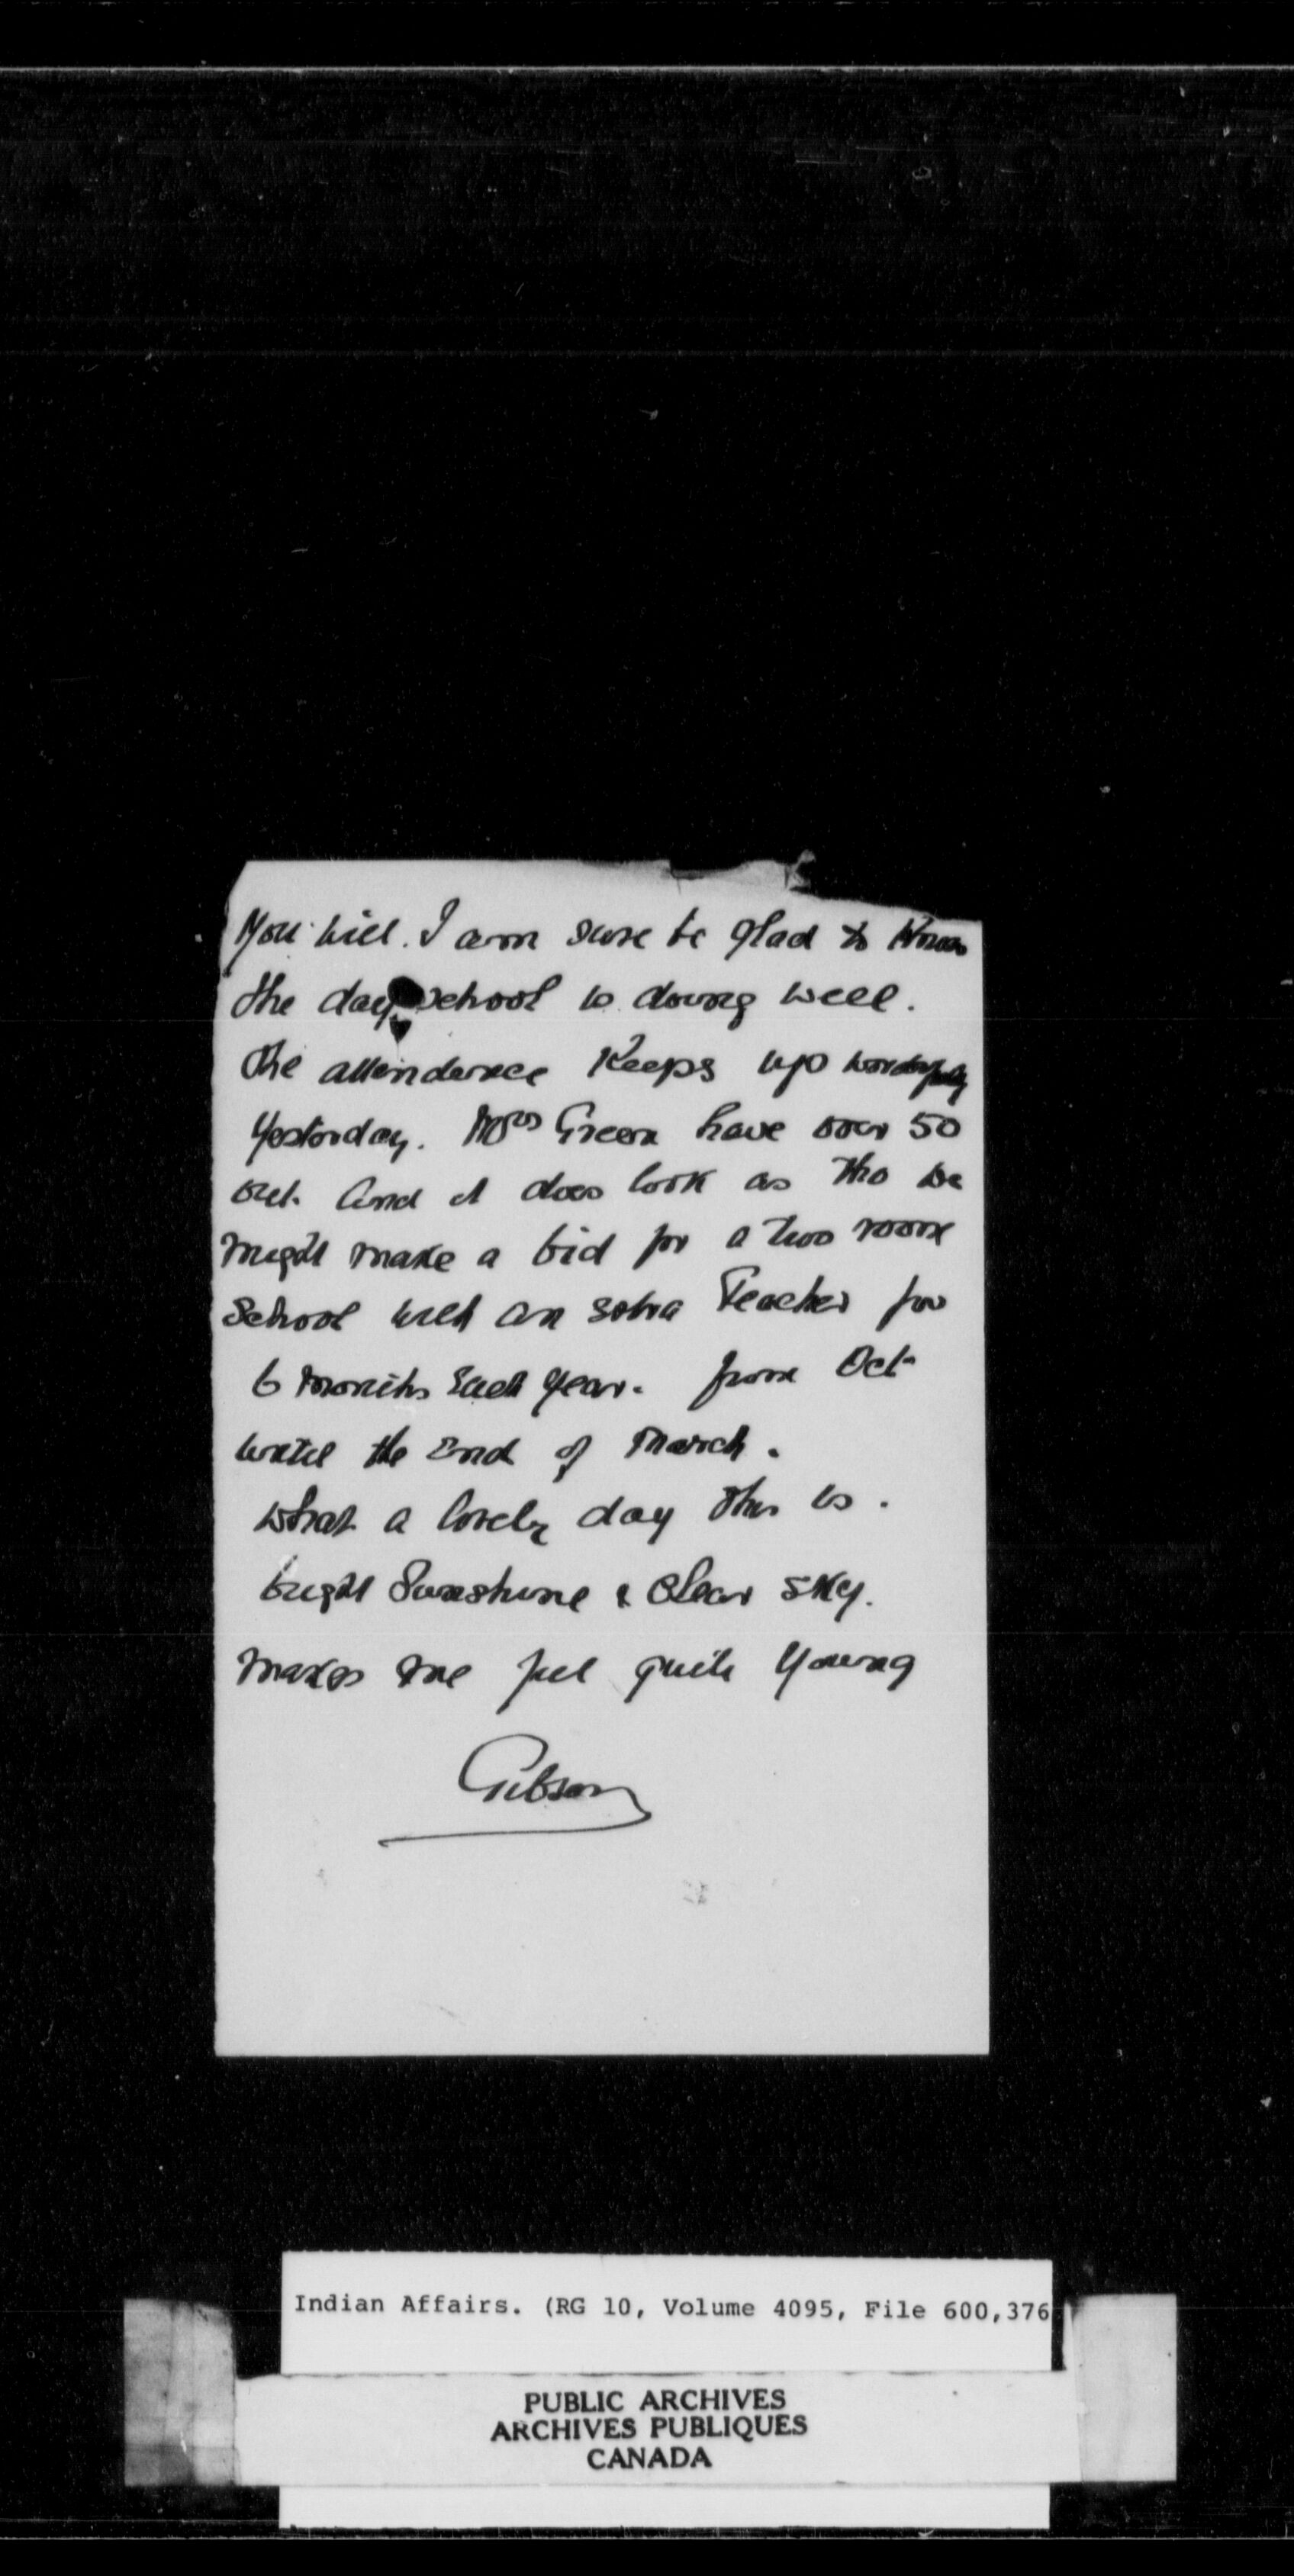 You will. I am sure be glad to Know
the day school is doing well.
The attendance Keeps up wonderfully
Yesterday. Mrs Green have over 50
out. And it does look as tho we
might make a bid for a two room
School with an Extra Teacher for
6 months Each year. from Oct-
until the End of March.
What a lovely day this is.
bright Sunshine & Clear Sky.
Makes one feel quite Young
Gibson
Indian Affairs. (RG 10, Volume 4095, File 600,376
PUBLIC ARCHIVES
ARCHIVES PUBLIQUES
CANADA